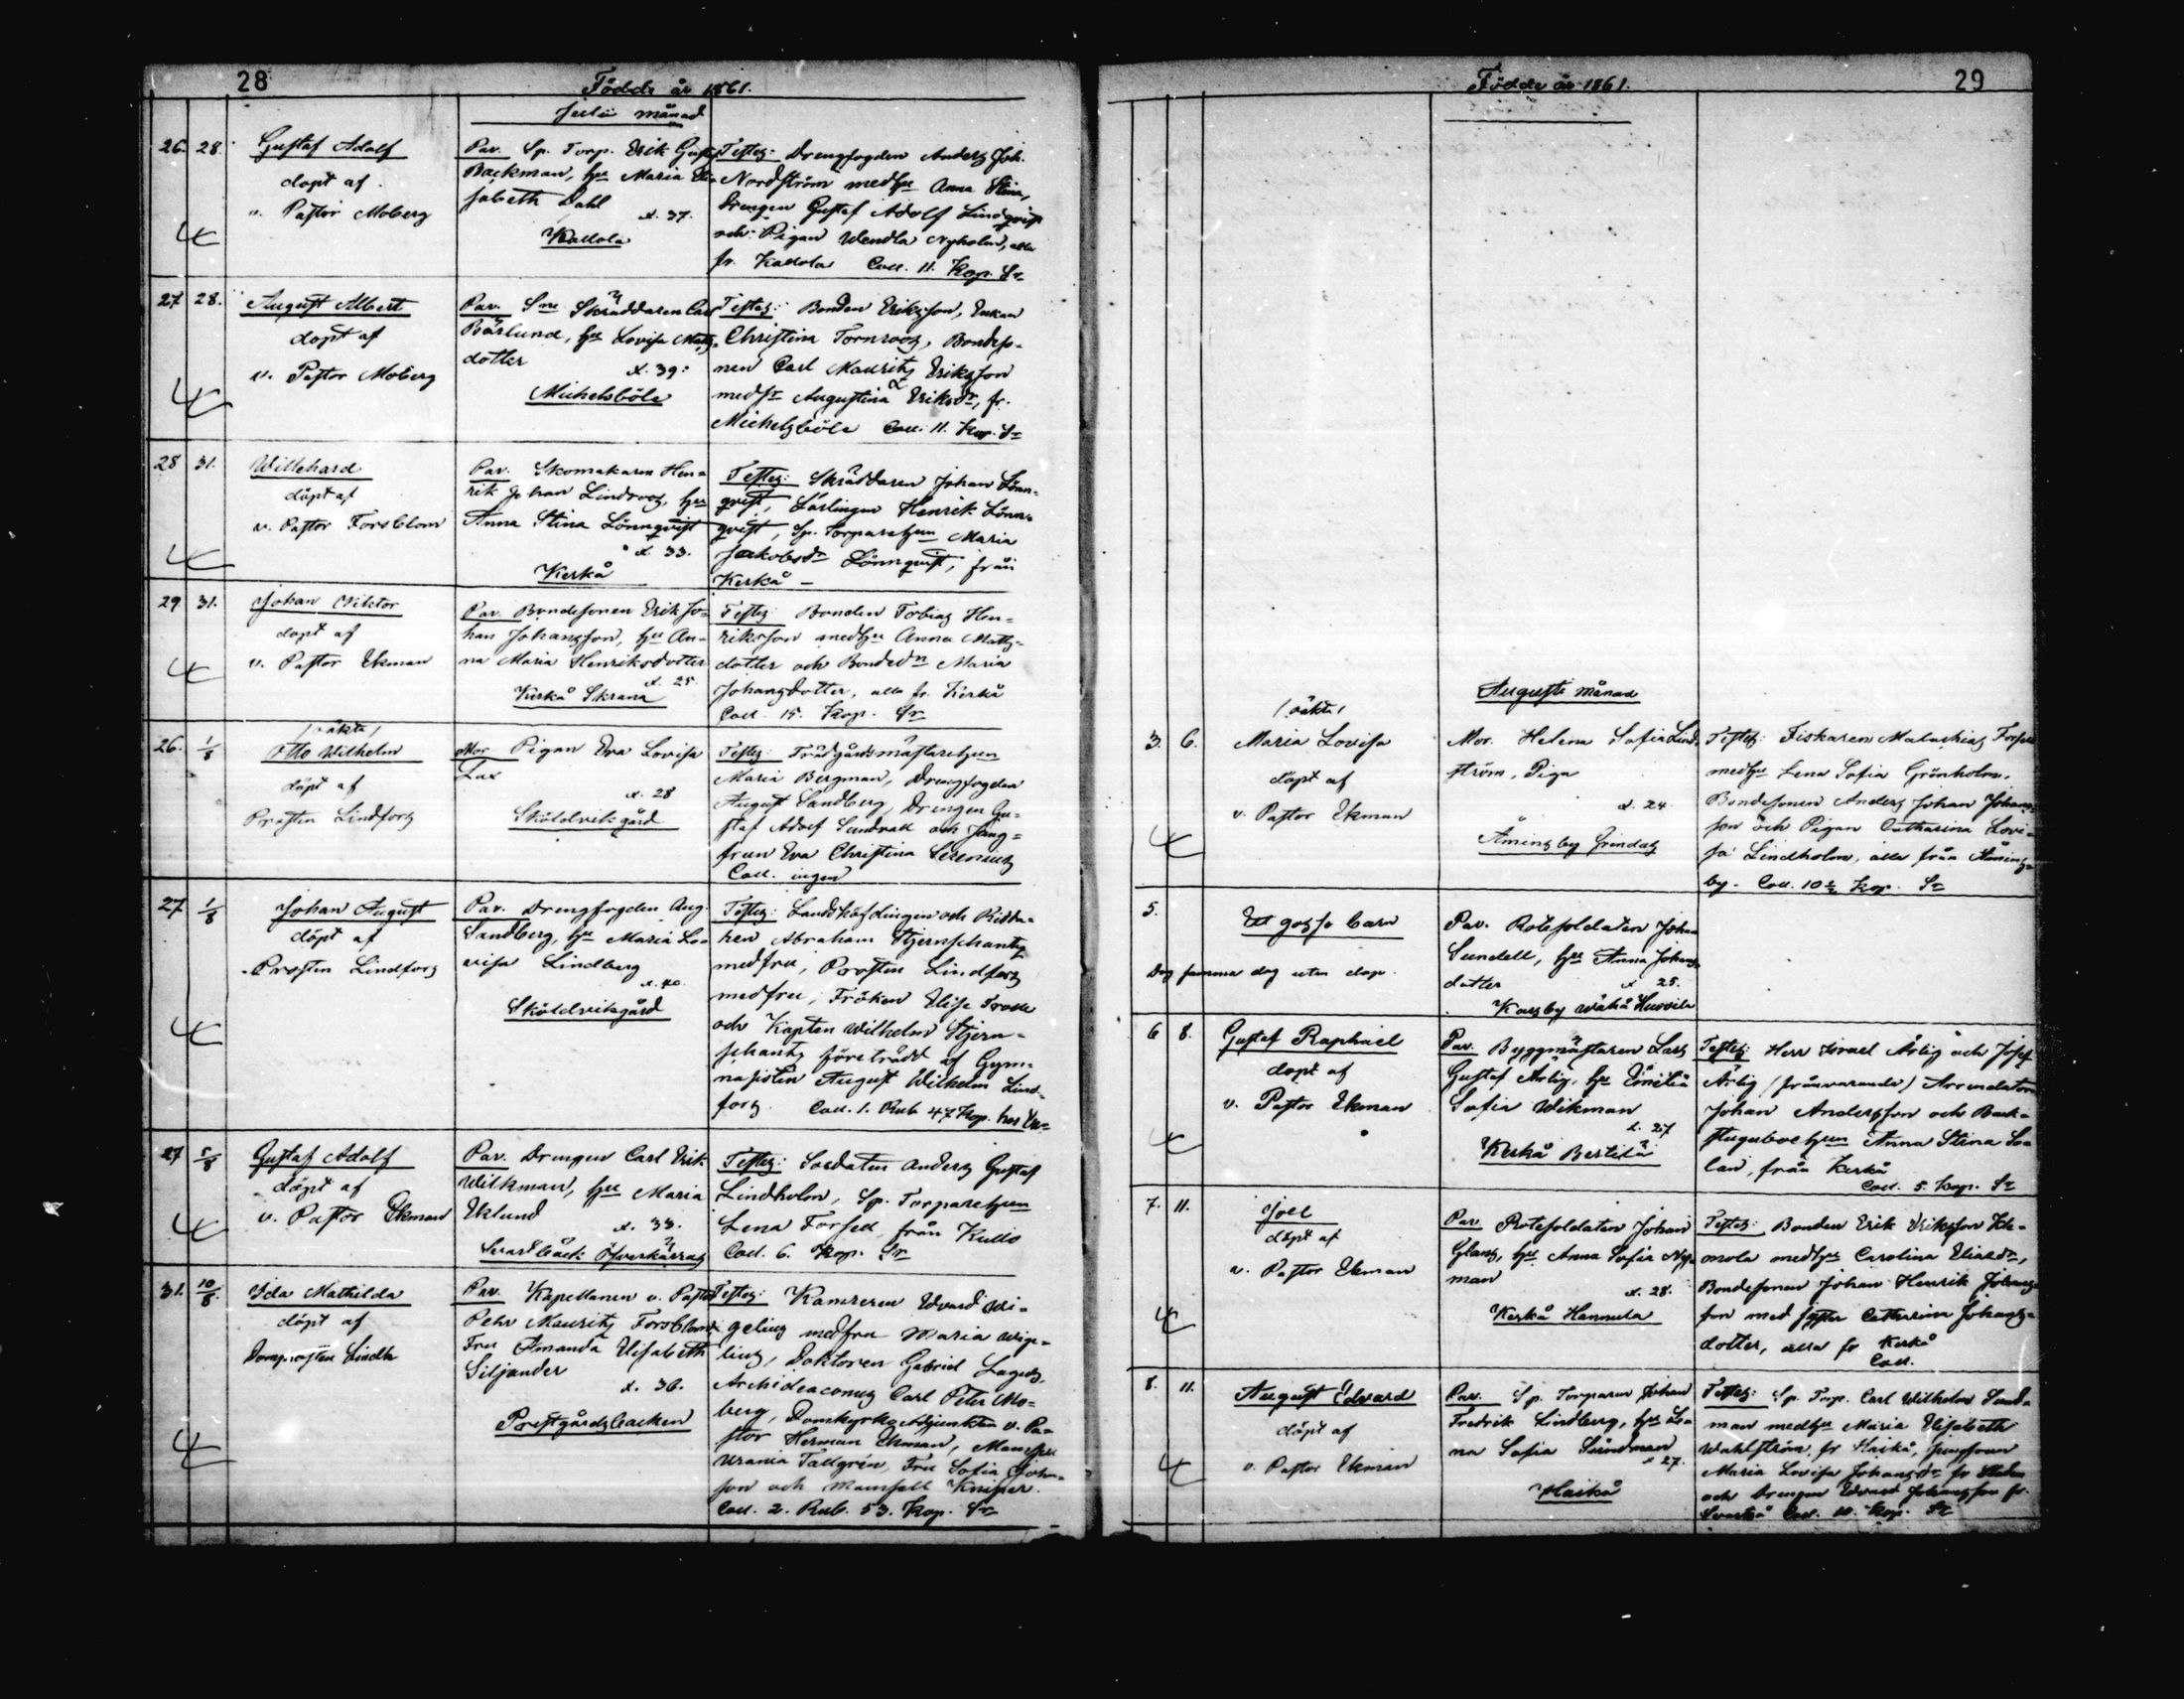 28
Födde år 1861.
Julii månad
26. 28. Gustaf Adolf
döpt af
v. Pastor Moberg
Par. Sp. Torp. Erik Gustaf
Backman, hu Maria Eli-
sabeth Dahl
æ. 37.
Kallola
Testes: Drengfogden Anders Joh.
Nordström med hu Anna Stina,
Drengen Gustaf Adolf Lindqvist
och Pigan Wendla Nyholm, alla
fr. Kallola Coll. 11. Kop. Sr
27 28. August Albert
döpt af
v. Pastor Moberg
Par. Skräddaren Carl
Bärlund, hu Lovisa Matts-
dotter
æ. 39.
Michelsböle
Testes: Bonden Eriksson, Enkan
Christina Tornroos, Bondeso-
nen Carl Maurits Eriksson
med Augustina Eriksdr, fr.
Michelsböle Coll. 11. Kop. Sr
28 31. Willehard
döpt af
v. Pastor Forsblom
Par. Skomakaren Hen-
rik Johan Lindroos, hu
Anna Stina Lönnqvist
æ. 33.
Kerkå
Testes: Skräddaren Johan Lönn-
qvist, Lärlingen Henrik Lönn-
qvist, Sp. Torparehun Maria
Jakobsdr Lönnqvist, från
Kerkå –
29 31. Johan Viktor
döpt af
v. Pastor Ekman
Par. Bondesonen Erik Jo-
han Johansson, hu An-
na Maria Henriksdotter
æ. 25.
Kerkå Skrana
Testes: Bonden Tobias Hen-
riksson med hu Anna Matts-
dotter och Bondedn Maria
Johansdotter, alla fr. Kerkå
Coll. 15. Kop. Sr
/oäkta/
26. 1/8 Otto Wilhelm
döpt af
Prosten Lindfors
Mor Pigan Eva Lovisa
Lax
æ. 28
Sköldvik gård
Testes: Trädgårdsmästarehun
Maria Bergman, Drengfogden
August Sandberg, Drengen Gu-
staf Adolf Sundvall och Jung-
frun Eva Christina Serenius
Coll. ingen
27 1/8 Johan August
döpt af
Prosten Lindfors
Par. Drengfogden Aug.
Sandberg, hu Maria Lo-
visa Lindberg
æ. 40.
Sköldviksgård
Testes: Landshöfdingen och Ridda-
ren Abraham Stjernschantz
med fru, Prosten Lindfors
med fru, Fröken Elise
och Kapten Wilhelm Stjern-
schantz företrädd af Gym-
nasisten August Wilhelm Lind-
fors. Coll. 1. Rub 47 Kop.
27 5/8 Gustaf Adolf
döpt af
v. Pastor Ekman
Par. Drengen Carl Erik
Wilkman, hu Maria
Eklund
æ. 33.
Svartbäck Öfverkärras
Testes: Soldaten Anders Gustaf
Lindholm, Sp. Torparehun
Lena Forsell, från Kullo
Coll. 6. Kop. Sr
31. 10/8 Ida Mathilda
döpt af
Domprosten Lindh
Par. Kapellanen v. Pastor
Pehr Maurits Forsblom
Fru Amanda Elisabeth
Siljander
æ. 36.
Prestgårdsbacken
Testes: Kamreren Edvard Wi-
gelius med fru Maria Wige-
lius, Doktoren Gabriel Lagus,
Archidiaconus Carl Peter Mo-
berg, Domkyrko Adjunkten v. Pa-
stor Herman Ekman, Mamsell
Urania Tallgren, Fru Sofia John-
son och Mamsell Kniper.
Coll. 2. Rub. 53. Kop. Sr
Födde år 1861.
29
Augusti månad
/oäkta/
3. 6. Maria Lovisa
döpt af
v. Pastor Ekman
Mor. Helena Sofia Lind-
ström, Piga
æ. 24.
Åminsby Grindas
Testes: Fiskaren Malachias Forsell
med hu Lena Sofia Grönholm,
Bondesonen Anders Johan Johans-
son och Pigan Catharina Lovi-
sa Lindholm, alla från Åmins-
by. Coll. 10½ Kop. Sr
5. Ett gosse barn
Dog samma dag utan dop.
Par. Rotesoldaten Johan
Sundell, hu Anna Johans-
dotter
æ 25.
Karsby
6 8. Gustaf Raphael
döpt af
v. Pastor Ekman
Par. Byggmästaren Lars
Gustaf Ärlig, hu Emelia
Sofia Wikman
æ. 27
Kerkå Bertilä
Testes: Herr Israel Ärlig och Josef
Ärlig (frånvarande) Arrendatorn
Johan Andersson och Back-
stuguboehun Anna Stina So-
lan, från Kerkå
Coll. 5. Kop. Sr
7. 11. Joel
döpt af
v. Pastor Ekman
Par. Rotesoldaten Johan
Glans, hu Anna Sofia Ny-
man
æ. 28.
Kerkå Hannula
Testes: Bonden Erik Eriksson
med hu Carolina Eliaedr,
Bondesonen Johan Henrik Johans-
son med syster Catharina Johans-
dotter, alla fr Kerkå
Coll.
8. 11. August Edvard
döpt af
v. Pastor Ekman
Par. Sp. Torparen Johan
Fredrik Lindberg, hu Le-
na Sofia Sundman
æ 27.
Haikå
Testes: Sp. Torp. Carl Wilhelm Sund-
man med hu Maria Elisabeth
Wahlström, fr Haikå, Jungfrun
Maria Lovisa Johansdr fr
och Drengen Edvard Johansson fr.
Svartså Coll. 10. Kop. Sr